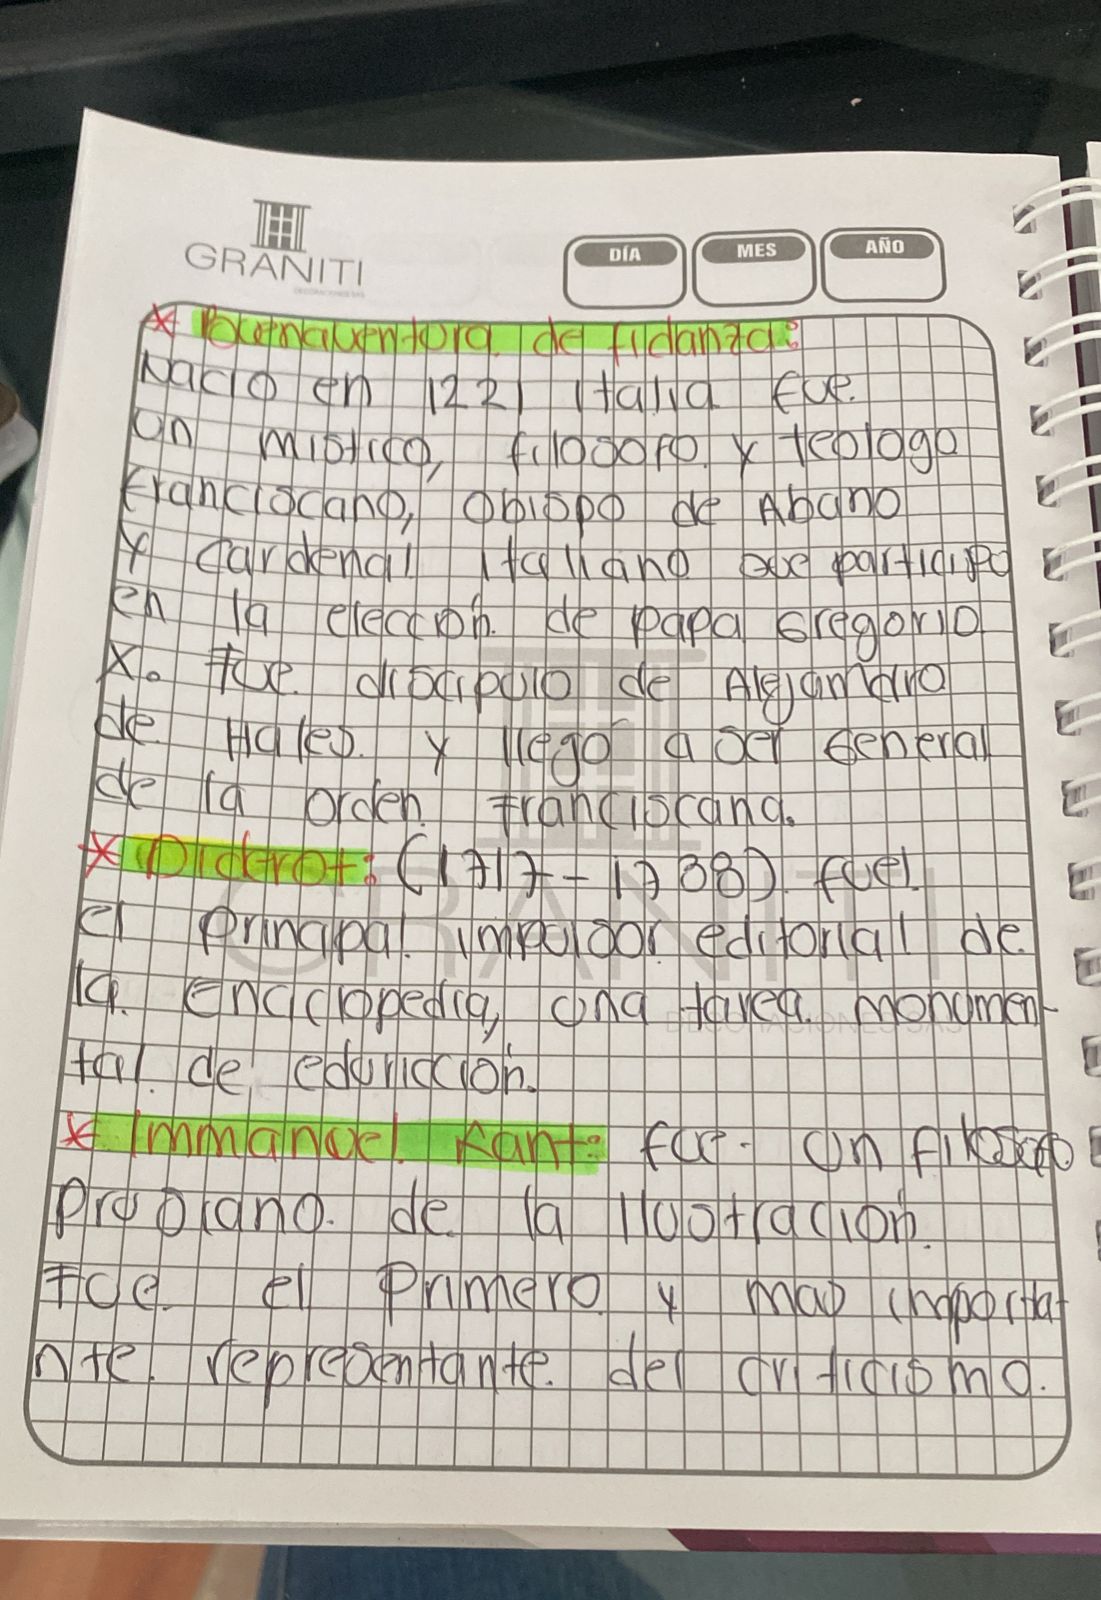 GRANITI
DÍA MES AÑO
* Buenaventura de fidanza:
Nacio en 1221 Italia fue.
un mistico, filosofo y teologo
franciscano, obispo de Abano
y cardenal Italiano que participo
en la elección. de papa Gregorio
X. Fue. discipulo de Alejandro
de Hales. y llegó a ser General
de la orden Franciscana.
* Diderot: (1717-1788). fuel
el Principal impulsor editorial de
la. Enciclopedia, una tarea monumen-
tal de
* Immanuel Kant: fue. un filosofo
prusiano. de la Ilustración.
Fue. el Primero y mas importa
nte. representante. del criticismo.